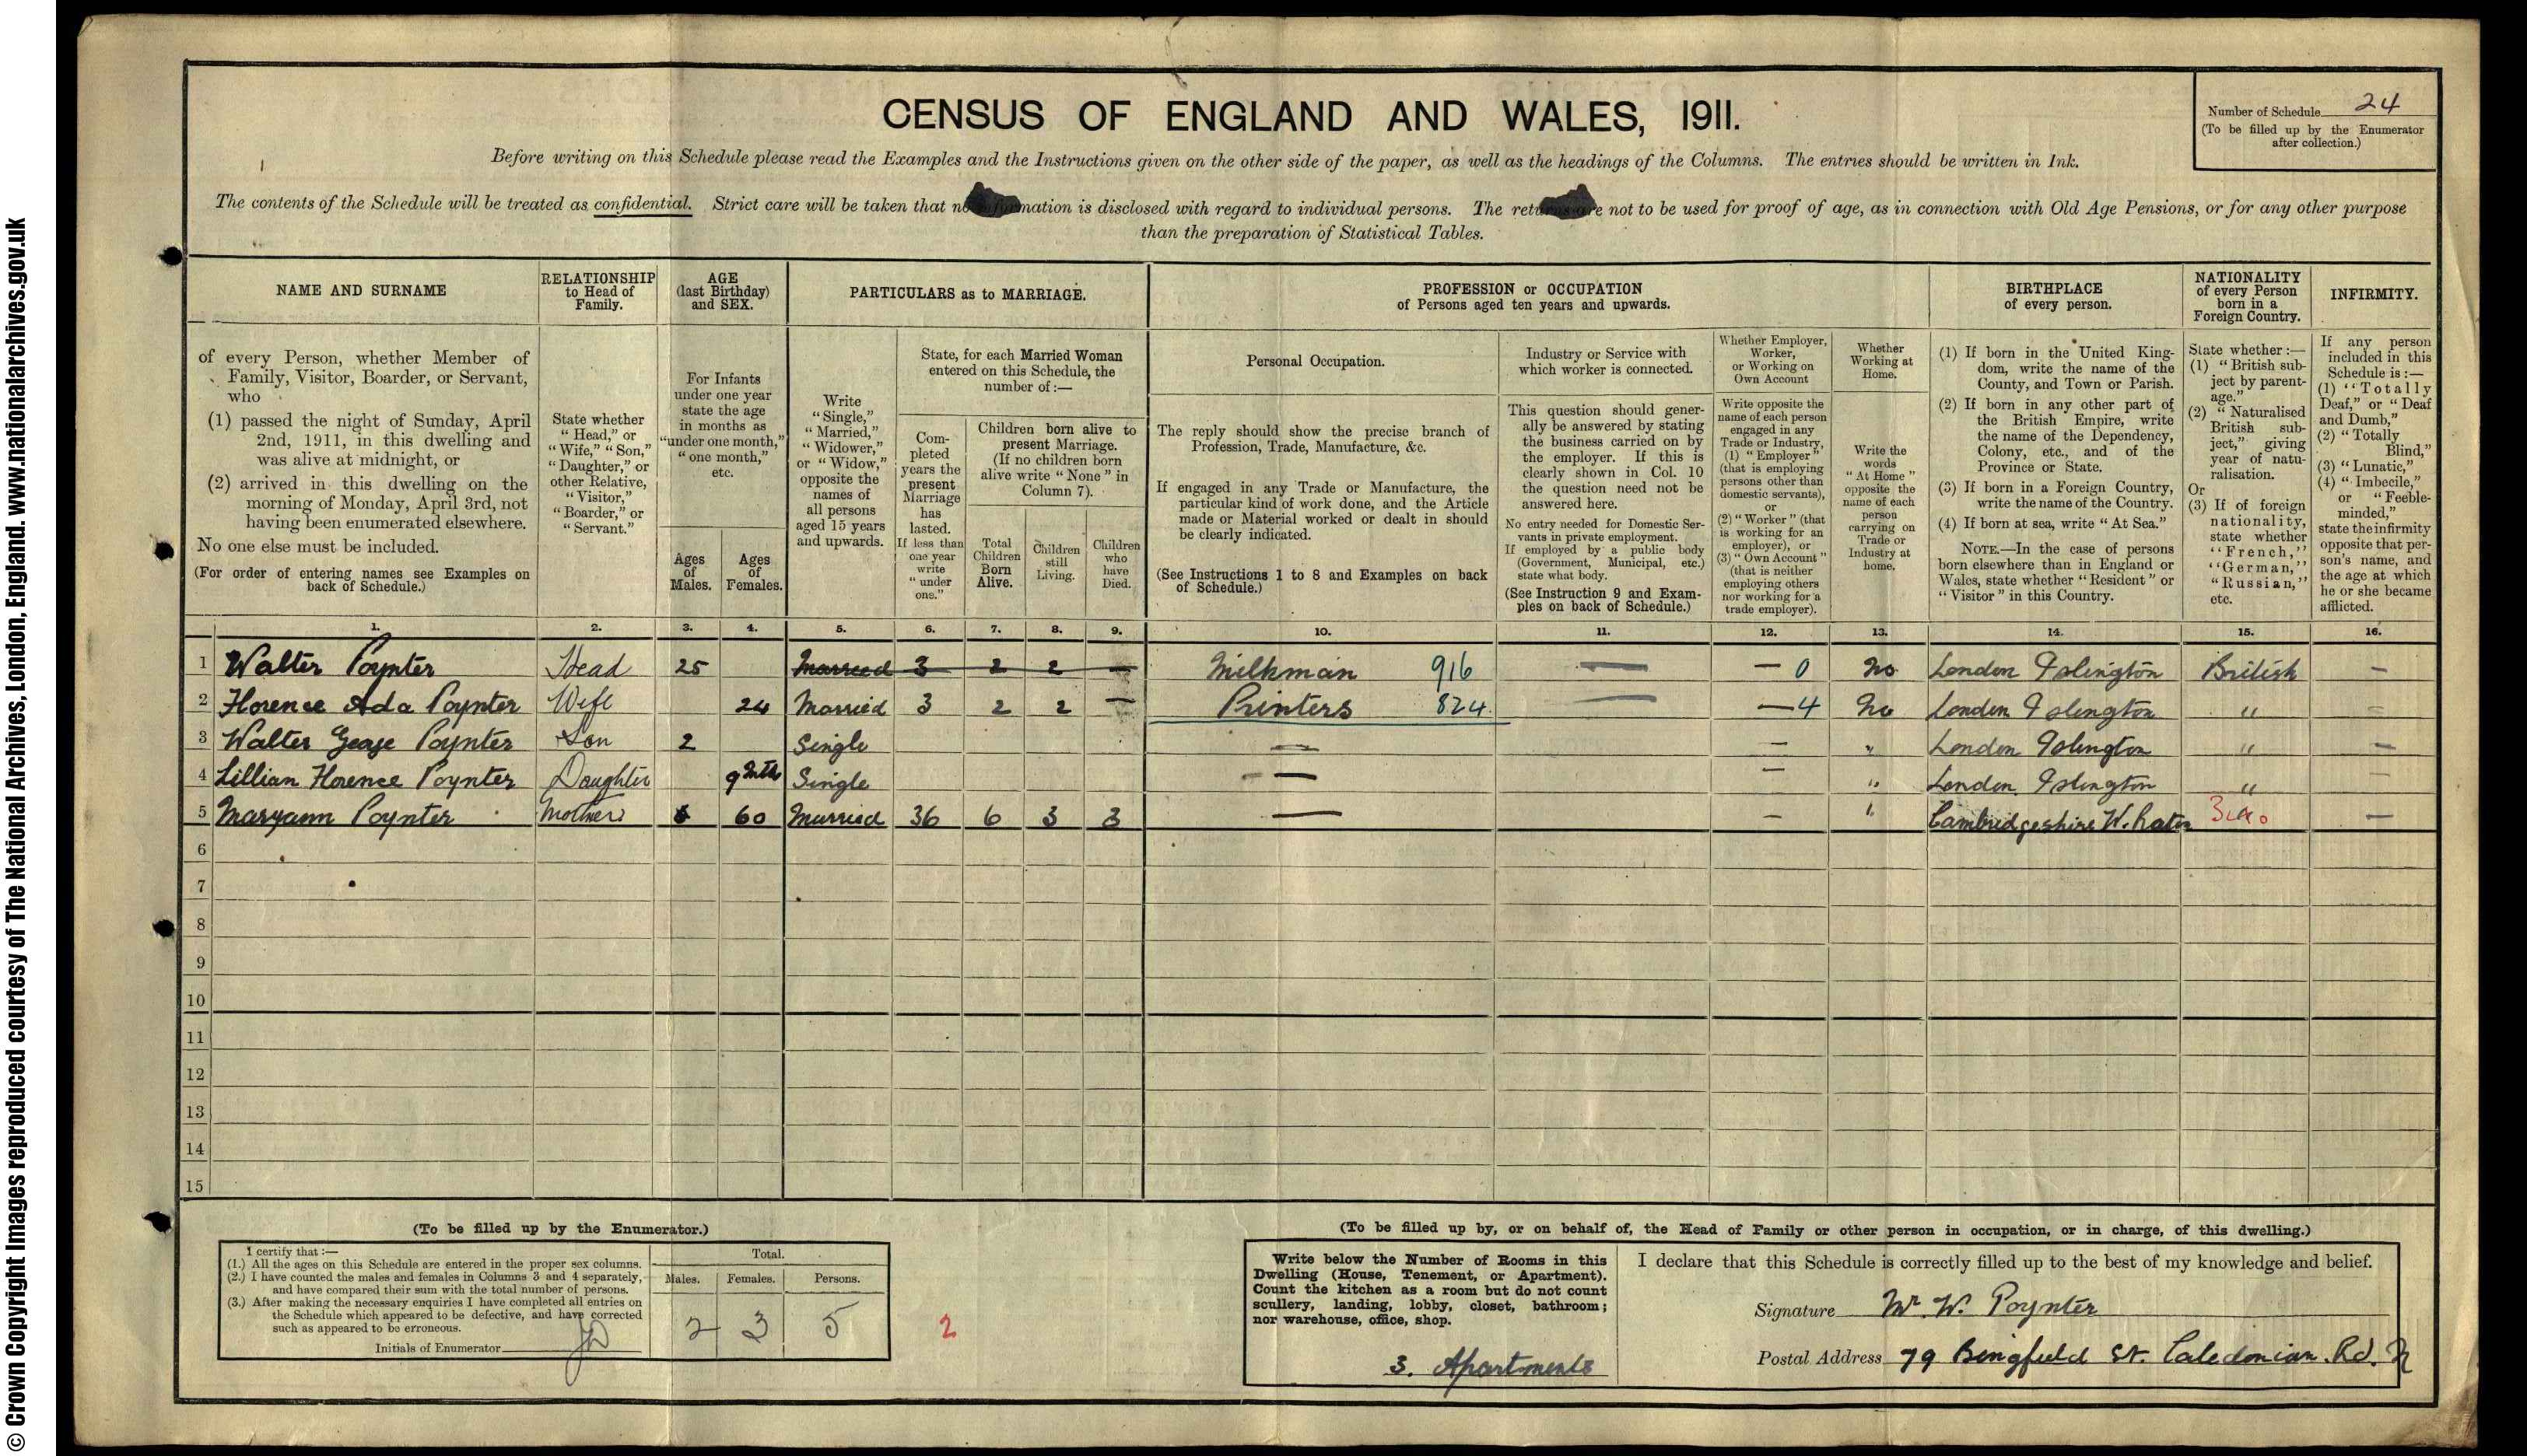 © Crown Copyright Images reproduced courtesy of The National Archives, London, England. www.nationalarchives.gov.uk
CENSUS OF ENGLAND AND WALES, 1911.
Number of Schedule 24
(To be filled up by the Enumerator
after collection.)
Before writing on this Schedule please read the Examples and the Instructions given on the other side of the paper, as well as the headings of the Columns. The entries should be written in Ink.
The contents of the Schedule will be treated as confidential. Strict care will be taken that no information is disclosed with regard to individual persons. The returns are not to be used for proof of age, as in connection with Old Age Pensions, or for any other purpose
than the preparation of Statistical Tables.
NAME AND SURNAME
of every Person, whether Member of
Family, Visitor, Boarder, or Servant,
who
(1) passed the night of Sunday, April
2nd, 1911, in this dwelling and
was alive at midnight, or
(2) arrived in this dwelling on the
morning of Monday, April 3rd, not
having been enumerated elsewhere.
No one else must be included.
(For order of entering names see Examples on
back of Schedule.)
RELATIONSHIP
to Head of
Family.
State whether
"Head," or
"Wife," "Son,"
"Daughter," or
other Relative,
"Visitor,"
"Boarder," or
"Servant."
AGE
(last Birthday)
and SEX.
For Infants
under one year
state the age
in months as
"under one month,"
"one month,"
etc.
Ages
of
Males.
Ages
of
Females.
PARTICULARS as to MARRIAGE.
Write
"Single,"
"Married,"
"Widower,"
or "Widow,"
opposite the
names of
all persons
aged 15 years
and upwards.
State, for each Married Woman
entered on this Schedule, the
number of:—
Com-
pleted
years the
present
Marriage
has
lasted.
If less than
one year
write
"under
one."
Children born alive to
present Marriage.
(If no children born
alive write "None" in
Column 7).
Total
Children
Born
Alive.
Children
still
Living.
Children
who
have
Died.
PROFESSION or OCCUPATION
of Persons aged ten years and upwards.
Personal Occupation.
The reply should show the precise branch of
Profession, Trade, Manufacture, &c.
If engaged in any Trade or Manufacture, the
particular kind of work done, and the Article
made or Material worked or dealt in should
be clearly indicated.
(See Instructions 1 to 8 and Examples on back
of Schedule.)
Industry or Service with
which worker is connected.
This question should gener-
ally be answered by stating
the business carried on by
the employer. If this is
clearly shown in Col. 10
the question need not be
answered here.
No entry needed for Domestic Ser-
vants in private employment.
If employed by a public body
(Government, Municipal, etc.)
state what body.
(See Instruction 9 and Exam-
ples on back of Schedule.)
Whether Employer,
Worker,
or Working on
Own Account
Write opposite the
name of each person
engaged in any
Trade or Industry,
(1) "Employer"
(that is employing
persons other than
domestic servants),
or
(2) "Worker" (that
is working for an
employer), or
(3) "Own Account"
(that is neither
employing others
nor working for a
trade employer).
Whether
Working at
Home.
Write the
words
"At Home"
opposite the
name of each
person
carrying on
Trade or
Industry at
home.
BIRTHPLACE
of every person.
(1) If born in the United King-
dom, write the name of the
County, and Town or Parish.
(2) If born in any other part of
the British Empire, write
the name of the Dependency,
Colony, etc., and of the
Province or State.
(3) If born in a Foreign Country,
write the name of the Country.
(4) If born at sea, write "At Sea."
NOTE.—In the case of persons
born elsewhere than in England or
Wales, state whether "Resident" or
"Visitor" in this Country.
NATIONALITY
of every Person
born in a
Foreign Country.
State whether:—
(1) "British sub-
ject by parent-
age."
(2) "Naturalised
British sub-
ject," giving
year of natu-
ralisation.
Or
(3) If of foreign
nationality,
state whether
"French,"
"German,"
"Russian,"
etc.
INFIRMITY.
If any person
included in this
Schedule is:—
(1) "Totally
Deaf," or "Deaf
and Dumb,"
(2) "Totally
Blind,"
(3) "Lunatic,"
(4) "Imbecile,"
or "Feeble-
minded,"
state the infirmity
opposite that per-
son's name, and
the age at which
he or she became
afflicted.
1. 2. 3. 4. 5. 6. 7. 8. 9. 10. 11. 12. 13. 14. 15. 16.
1 Walter Poynter Head 25 Married 3 2 2 — Milkman 916 — — 0 No London Islington British —
2 Florence Ada Poynter Wife 24 Married 3 2 2 — Printers 824 — — 4 No London Islington " =
3 Walter George Poynter Son 2 Single — — " London Islington " —
4 Lillian Florence Poynter Daughter 9 Mths Single — — " London Islington " —
5 Maryann Poynter Mother 60 Married 36 6 3 3 — — " Cambridgeshire W. —
6
7
8
9
10
11
12
13
14
15
(To be filled up by the Enumerator.)
I certify that:—
(1.) All the ages on this Schedule are entered in the proper sex columns.
(2.) I have counted the males and females in Columns 3 and 4 separately,
and have compared their sum with the total number of persons.
(3.) After making the necessary enquiries I have completed all entries on
the Schedule which appeared to be defective, and have corrected
such as appeared to be erroneous.
Initials of Enumerator
Total.
Males. Females. Persons.
2 3 5
2
(To be filled up by, or on behalf of, the Head of Family or other person in occupation, or in charge, of this dwelling.)
Write below the Number of Rooms in this
Dwelling (House, Tenement, or Apartment).
Count the kitchen as a room but do not count
scullery, landing, lobby, closet, bathroom;
nor warehouse, office, shop.
3. Apartments
I declare that this Schedule is correctly filled up to the best of my knowledge and belief.
Signature Mr W. Poynter
Postal Address 79 Bingfield St. Caledonian. Rd. N